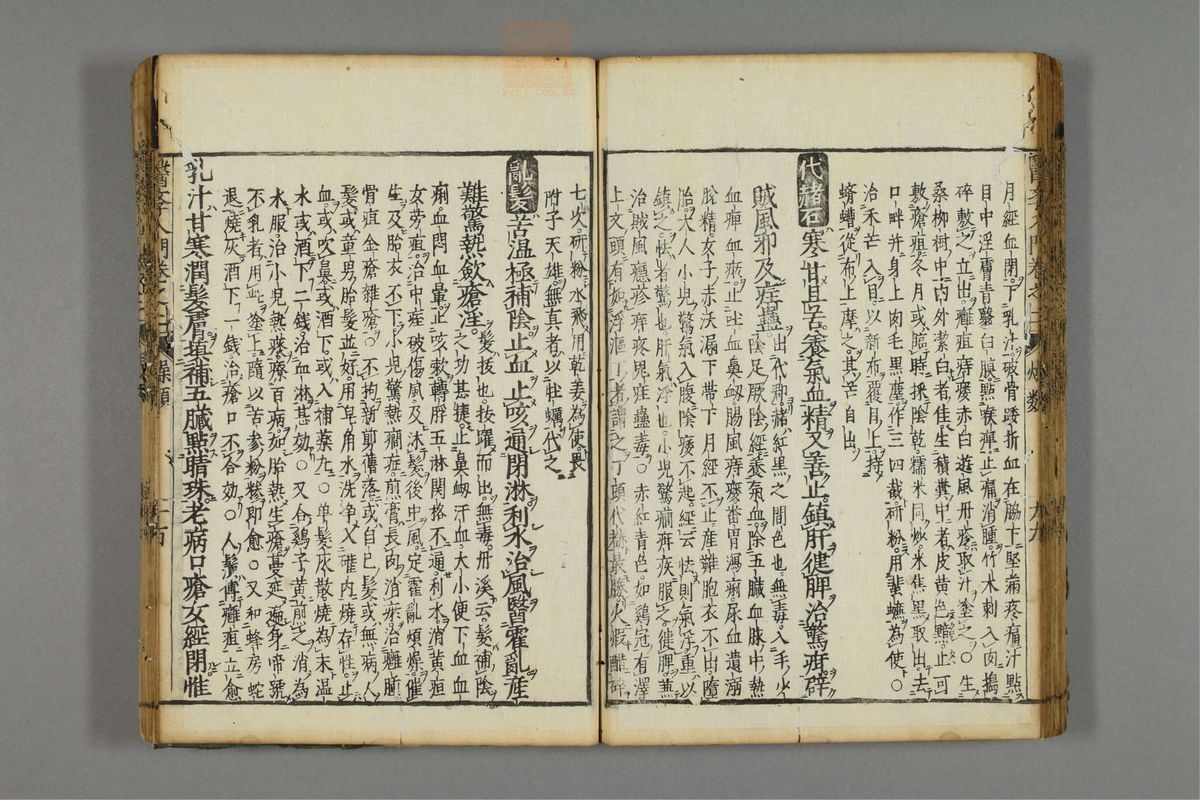 月經血閉下乳汁破骨踒折血在脇下堅痛疼痛汁點
目中淫膚青翳白膜點喉痺止痛消腫竹木刺入肉搗
碎敷之立出癰疽痔瘻赤白遊風丹疹取汁塗之○生
桑柳樹中內外潔白者佳生積糞中者皮黃色黯止可
敷瘡疽冬月或臨時採陰乾糯米同炒米焦黑取出去
口畔并身上肉毛黑塵作三四截研粉用蜚蠊為使○
治禾芒入目以新布覆目上持
蠐螬從布上摩之其芒自出
代赭石寒甘且苦養氣血精又善止鎮肝健脾治驚疳辟
賊風邪及症蠱出代州赭紅黑之間色也無毒入手少
陰足厥陰經養氣血除五臟血脉中熱
血痺血瘀止吐血鼻衂腸風痔瘻番胃瀉痢尿血遺溺
脫精女子赤沃漏下帶下月經不止產難胞衣不出墮
胎大人小兒驚氣入腹陰痿不起經云怯則氣浮重以
鎮之怯者驚也肝氣浮也小兒驚癇疳疾服之健脾兼
治賊風癮疹痒疼鬼疰蠱毒○赤紅青色如雞冠有澤
上文頭有如浮漚丁者謂之丁頭代赭最勝火煆醋碎
七次研粉水飛用乾姜為使畏
附子天雄無真者以牡蠣代之
亂髮苦溫極補陰止血止咳通閉淋利水治風醫霍亂產
難驚熱歛瘡淫髮拔也拔躍而出無毒丹溪云髮補陰
之功甚捷止鼻衂汗血大小便下血血
痢血悶血暈止咳嗽轉脬五淋関格不通利水消黃疸
女勞疸治中痓破傷風及沐髮後中風定霍亂煩燥催
生及胎衣不下小兒驚熱癇症煎膏長肉消瘀治癰腫
骨疽金瘡雜瘡○不拘新剪舊落或自己髮或無病人
髮或童男胎髮並好用皂角水洗净入確內燒存性止
血或吹鼻或酒下或入補藥丸○单髮灰散燒為末溫
水或酒下二錢治血淋甚効○又合鷄子黃煎之消為
水服治小兒熱痰療百病如胎熱生瘡蔓延遍身啼號
不乳者用此塗上隨以苦参粉糝即愈○又和蜂房蛇
退燒灰酒下一錢治瘡口不合効○人鬚傅癰疽立愈
乳汁甘寒潤髮膚填補五臟點睛珠老病口瘡女經閉惟